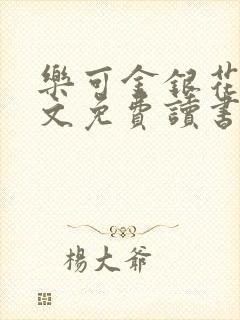 樂可金銀花
文免費讀書
楊大爺